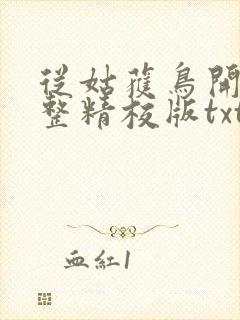 從姑蒦鳥開
整精校版txt
血紅1